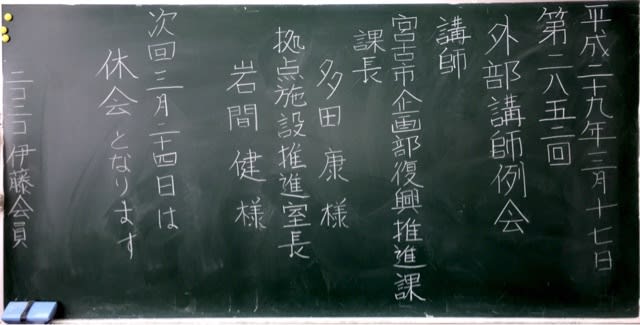 平成二十九年三月十七日
第二八五二回
外部講師例会
講師
宮古市企画部復興推進課
課長
多田康様
拠点施設推進室長
岩間健様
次回三月二十四日は
休会となります
ニコニコ伊藤会員